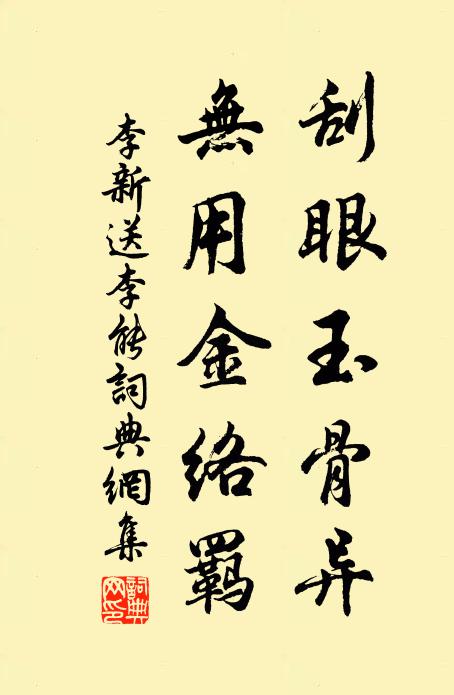 刮眼玉骨异
無用金絡羈
李新送李能詞典網集
詞典網印